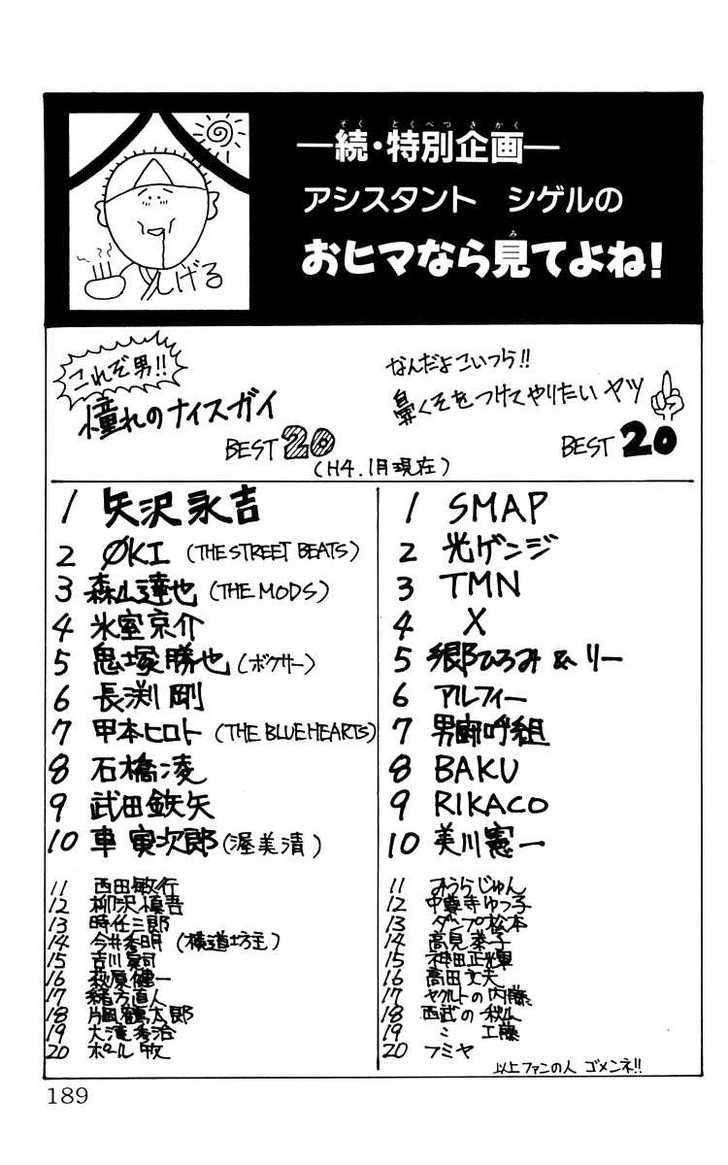 ―続・特別企画―
ぞく とくべつきかく
アシスタント シゲルの
おヒマなら見てよね!
み
しげる
これぞ男!!
憧れのナイスガイ
BEST 20
なんだよこいつら!!
鼻くそをつけてやりたいヤツ
BEST 20
(H4.1月現在)
1 矢沢永吉
2 ØKI (THE STREET BEATS)
3 森山達也 (THE MODS)
4 氷室京介
5 鬼塚勝也 (ボクサー)
6 長渕剛
7 甲本ヒロト (THE BLUE HEARTS)
8 石橋凌
9 武田鉄矢
10 車寅次郎 (渥美清)
11 西田敏行
12 柳沢慎吾
13 時任三郎
14 今井秀明 (横道坊主)
15 吉川晃司
16 萩原健一
17 緒方直人
18 片岡鶴太郎
19 大滝秀治
20 ポール牧
1 SMAP
2 光ゲンジ
3 TMN
4 X
5 郷ひろみ & リー
6 アルフィー
7 男闘呼組
8 BAKU
9 RIKACO
10 美川憲一
11 みうらじゅん
12 中尊寺ゆつ子
13 ダンプ松本
14 高見恭子
15 神田正輝
16 高田文夫
17 ヤクルトの内藤
18 西武の秋山
19 〃 工藤
20 フミヤ
以上ファンの人 ゴメンネ!!
189